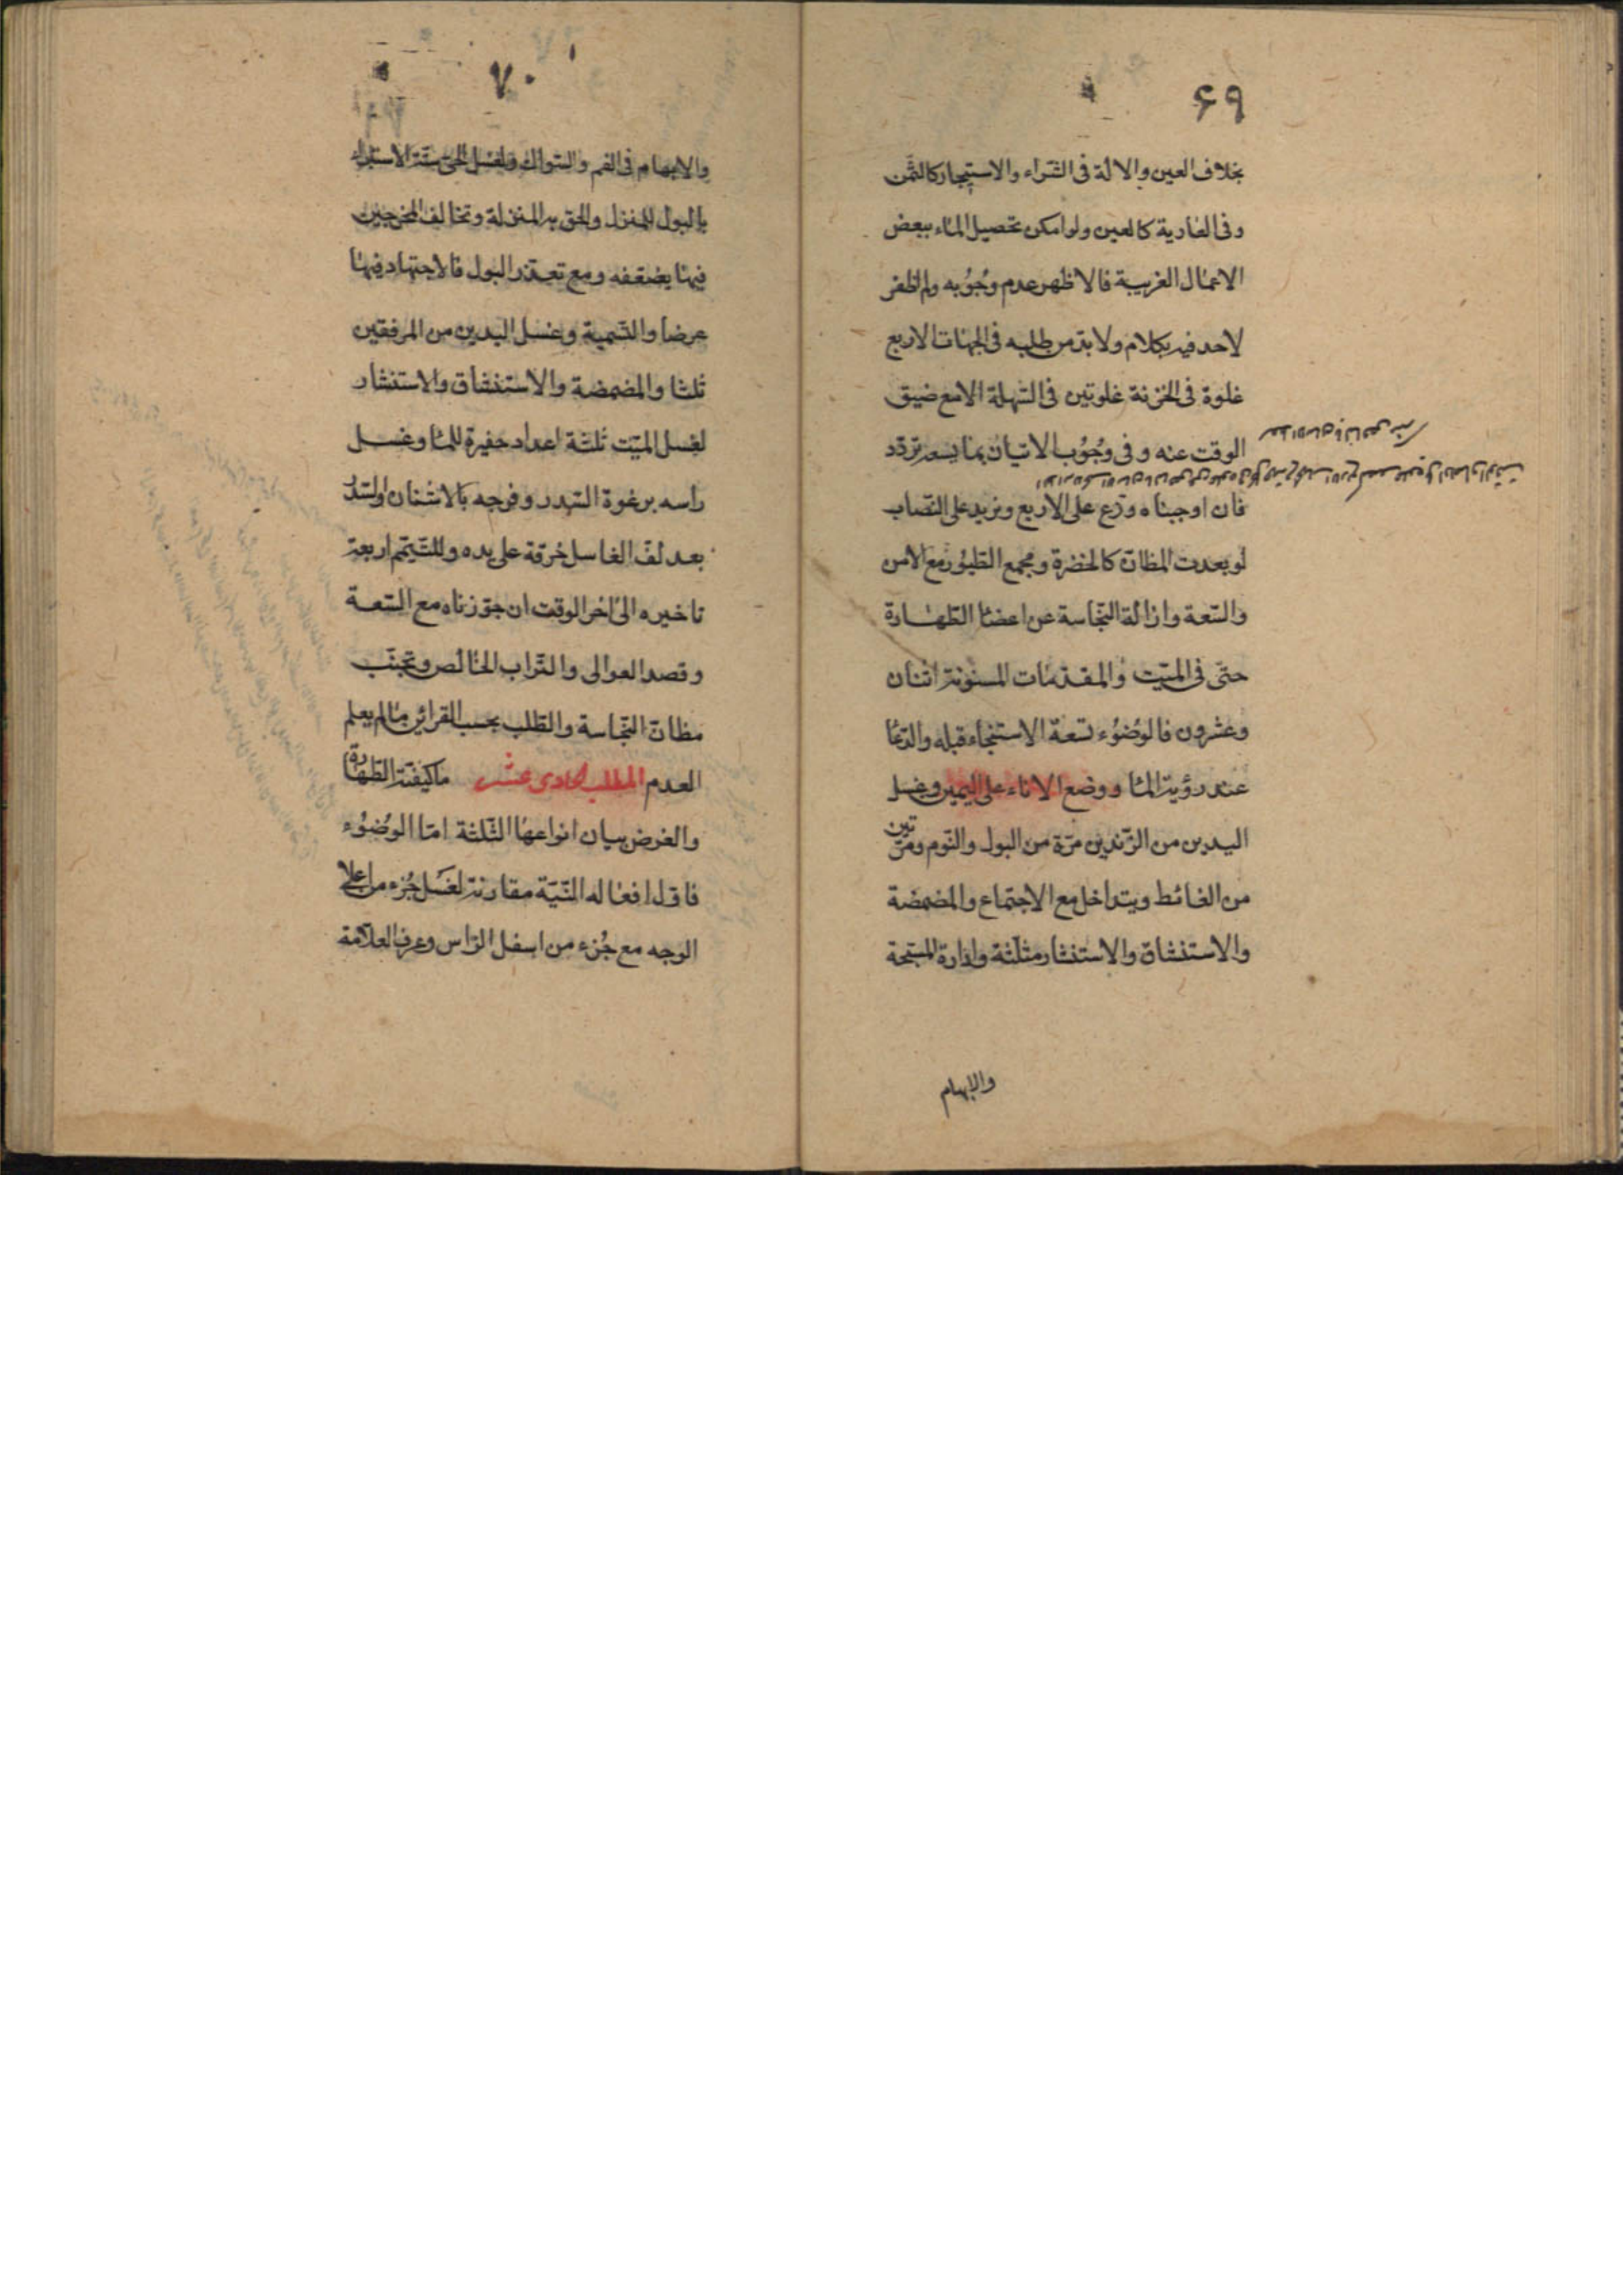 ۶۹
بخلاف العين والالة فى الشراء والاستيجار كالثمن
وفى العارية كالعين ولو امكن تحصيل الماء ببعض
الاعمال الغريبة فالاظهر عدم وجُوُبه ولم اظفر
لاحد فيه بكلام ولا بد من طلبه فى الجهات الاربع
غلوة فى الحزنة غلوتين فى السهلة الا مع ضيق
الوقت عنه وفى وجُوُب الاتيان بما يسعه تردّد
فان اوجبناه وزع على الاربع ونزيد على النصاب
لو بعدت المظانّ كالخضرة ومجمع الطيُور مع الامن
والسّعة وازالة النّجاسة عن اعضا الطّهارة
حتى فى الميّت والمقدّمات المسنُونة اثنان
وعشرون فالوُضُوُء تسعة الاستنجاء قبله والدّعا
عند رؤية الما ووضع الاناء على اليمين وغسل
اليدين من الزّندين مرّة من البول والنّوم ومرّتين
من الغائط ويتداخل مع الاجتماع والمضمضة
والاستنشاق والاستنشار مثلّثة وادارة المسبّحة
والابهام
۷۰
والابهام فى الفم والسّواك ولغسل الحى ستّة الاستبراء
بالبول للمنزل والحق به المنزلة وتخالف المخرجين
فيها يضعفه ومع تعذّر البول فالاجتهاد فيها
عرضا والتّسمية وغسل اليدين من المرفقين
ثلثا والمضمضة والاستنشاق والاستنشار
لغسل الميّت ثلثة اعداد حفيرة للما وغسل
راسه برغوة السّدر وفرجه بالاشنان او السّدر
بعد لفّ الغاسل خرقة على يده وللتيمّم اربعة
تاخيره الى اخر الوقت ان جوّزناه مع السّعة
وقصد العوالى والتّراب الخالص وتجنّب
مظانّ النّجاسة والطّلب بحسب القرائن ما لم يعلم
العدم المطلب الحادى عشر ما كيفيّة الطّهارة
والغرض بيان انواعها الثّلثة امّا الوُضُوُء
فاوّل افعاله النّيّة مقارنة لغسل جُزء من اعلى
الوجه مع جُزء من اسفل الرّاس وعرف العلّامة